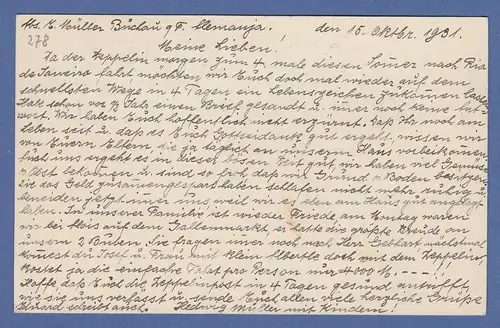 Abs. E. Müller Buchau a/F. Alemanja. den 15. Oktbr. 1931.
278
Meine Lieben!
Da der Zeppelin morgen zum 4 male diesen Somer nach Rio
de Janeiro fährt möchten wir Euch doch mal wieder auf dem
schnellsten Wege in 4 Tagen ein Lebenszeichen zukomen lassen
Habe schon vor ½ Jahr einen Brief gesandt u. imer noch keine Ant-
wort. Wir haben Euch hoffentlich nicht erzürnt. Daß Ihr noch am
Leben seit u. daß es Euch Gottseidank gut ergeht, wissen wir
von Euern Eltern, die ja täglich an unserm Haus vorbeikomen.
Auch uns ergeht es in dieser bösen Zeit gut wir haben viel Gemüse
u. Obst bekomen u. sind so froh daß wir Grund u. Boden besitzen
Die das Geld zusamengespart haben schlafen nicht mehr ruhig u.
beneiden jetzt uns weil wir es eben am Haus gut angelegt
haben. In unserer Familie ist wieder Friede am Montag waren
wir bei Alois auf dem Gallenmarkt er hatte die größte Freude an
unsern 2 Buben. Sie fragen imer noch nach Herr Gebhart
komest du Josef u. Frau mit klein Alberth doch mit dem Zeppelin,
kostet ja die einfache Fahrt pro Person nur 4000 M. ---!
Hoffe, daß Euch die Zeppelinpost in 4 Tagen gesund antrifft,
wie sie uns verläßt u. sende Euch allen viele herzliche Grüße
Eduard schreibt auch. Hedwig Müller mit Kindern!